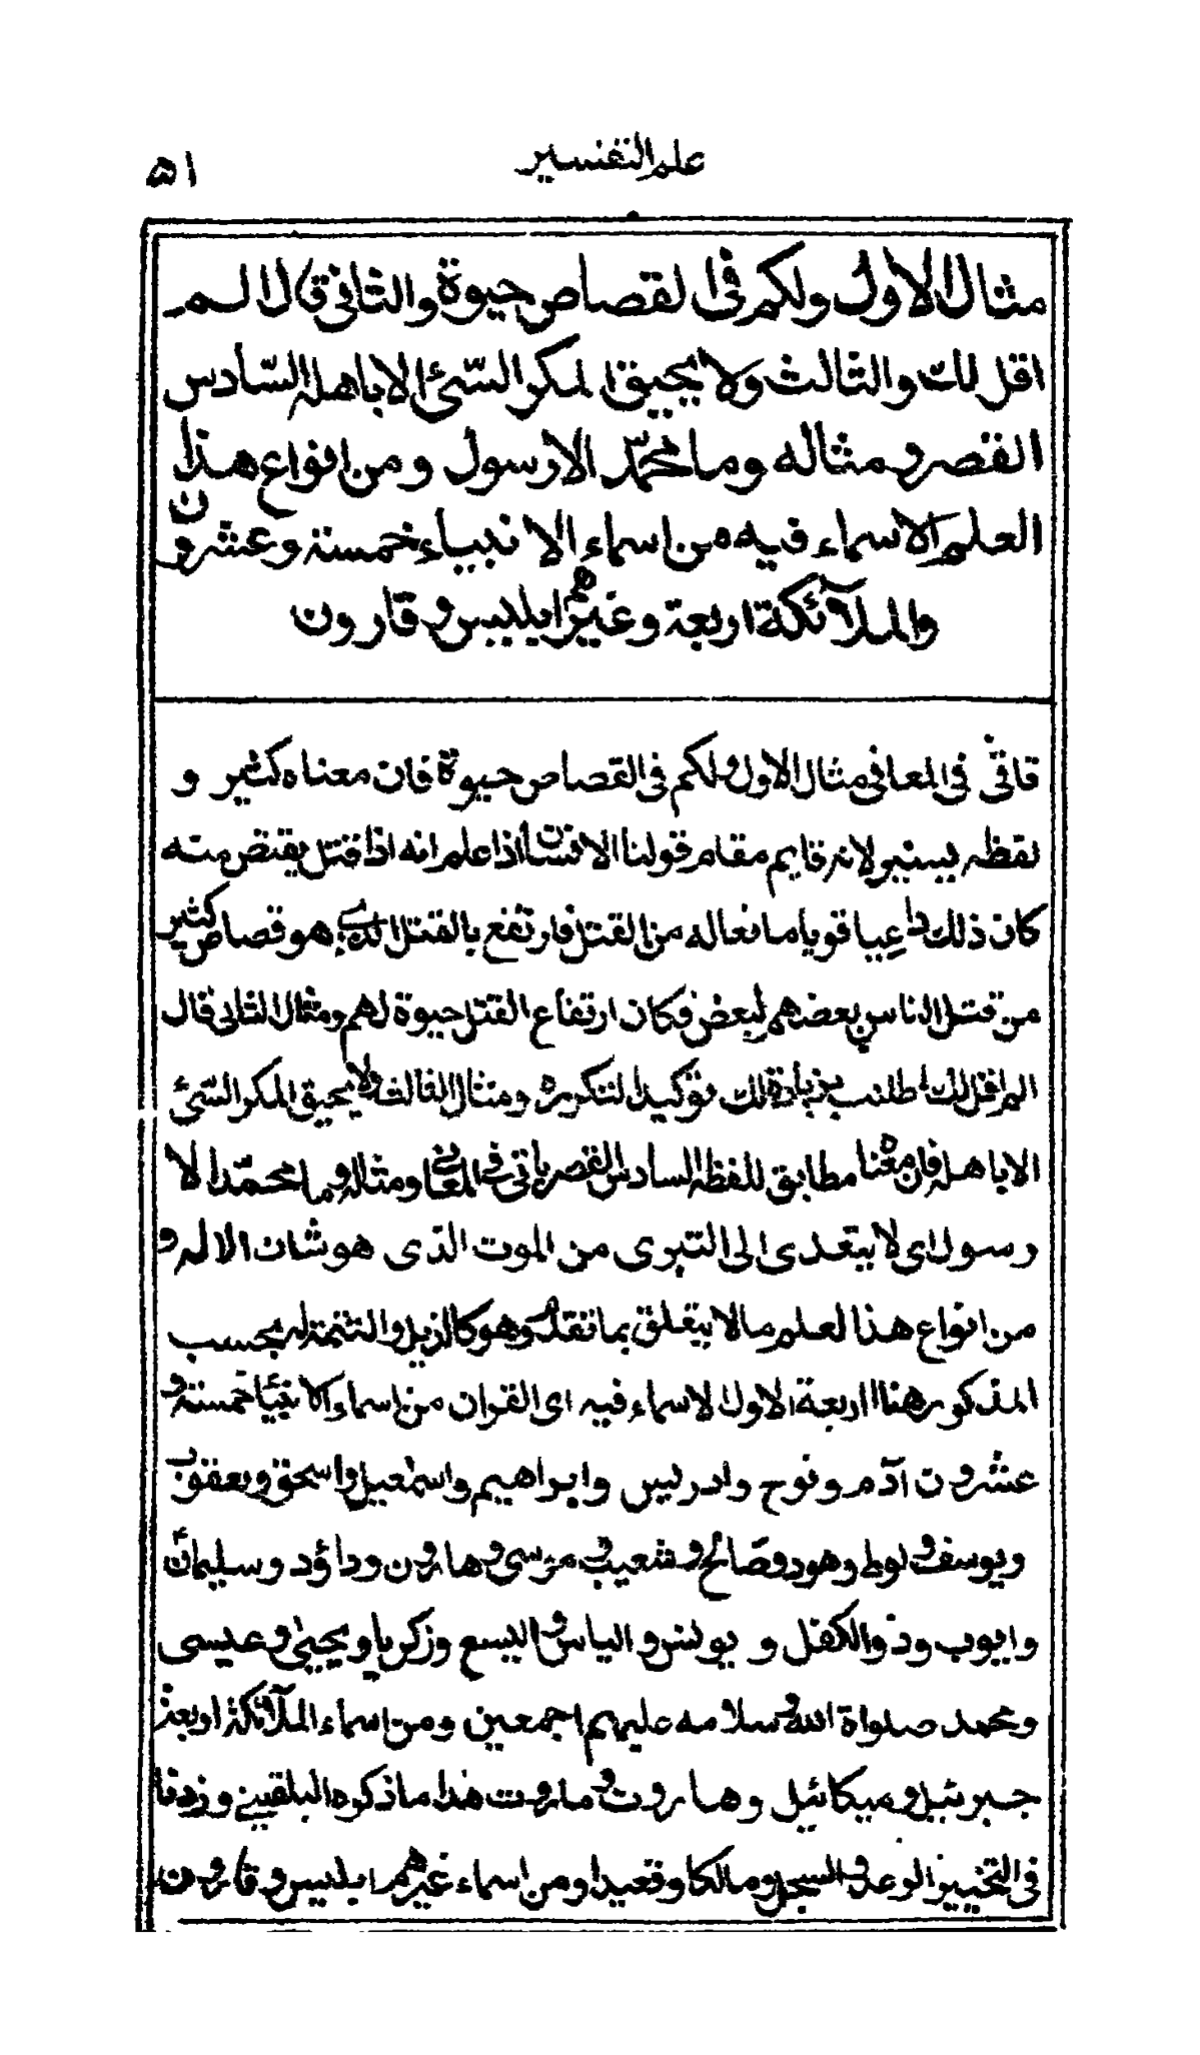 علم التفسير
٥١
مثال الاول ولكم فى القصاص حيوة والثانى قال الم
اقل لك والثالث ولا يحيق المكر السّيئ الا باهله السّادس
القصر ومثاله وما محمّد الا رسول ومن انواع هذا
العلم الاسماء فيه من اسماء الانبياء خمسة وعشرون
والملآئكة اربعة وغيرهم ابليس وقارون
فى المعانى مثال الاول ولكم فى القصاص حيوة فان معناه كثير و
لفظه يسير لانه قايم مقام قولنا الانسان اذا علم انه اذا قتل يقتص منه
كان ذلك داعيا قويا مانعاله من القتل فارتفع بالقتل الذى هو قصاص كثير
من قتل الناس بعضهم لبعض فكان ارتفاع القتل حيوة لهم ومثال الثانى قال
الم اقل لك بزيادة لك توكيدا لتكرره ومثال الثالث ولا يحيق المكر السّيئ
الا باهله فان معناه مطابق للفظه السادس القصر ياتى فى المعانى ومثاله وما محمّد الا
رسول اى لا يتعدى الى التبرى من الموت الذى هو شان الاله و
من انواع هذا لعلم مالا يتعلق بما تقدم وهو كالذيل والتتمة له بحسب
المذكور هنا اربعة الاول الاسماء فيه اى القران من اسماء الانبياء خمسة و
عشرون آدم ونوح وادريس وابراهيم واسمعيل واسحق ويعقوب
ويوسف ولوط وهود وصالح وشعيب وموسى وهارون وداؤد وسليمان
وايوب وذو الكفل و يونس والياس واليسع وزكريا ويحيىٰ وعيسى
ومحمد صلواة الله وسلامه عليهم اجمعين ومن اسماء الملآئكة اربعة
جبرئيل وميكائيل وهاروت وماروت هذا ما ذكره البلقينى وزدنا
فى التحبير الرعد والسجل ومالكا وقعيدا ومن اسماء غيرهم ابليس وقارون